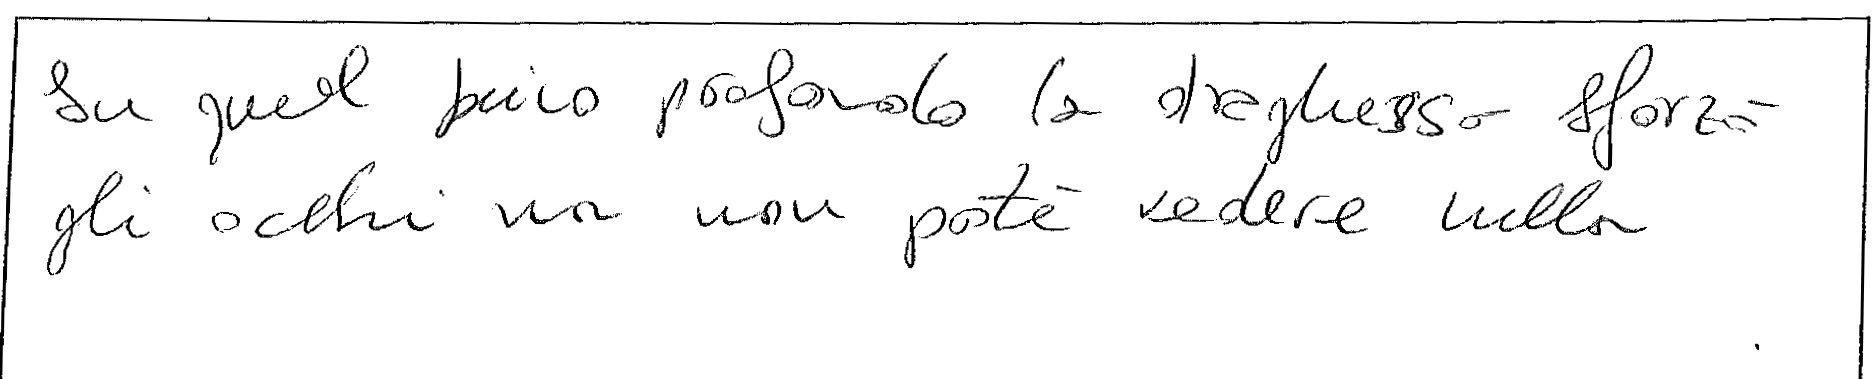 Su quel buio profondo la draghessa sforzò
gli occhi ma non poté vedere nulla